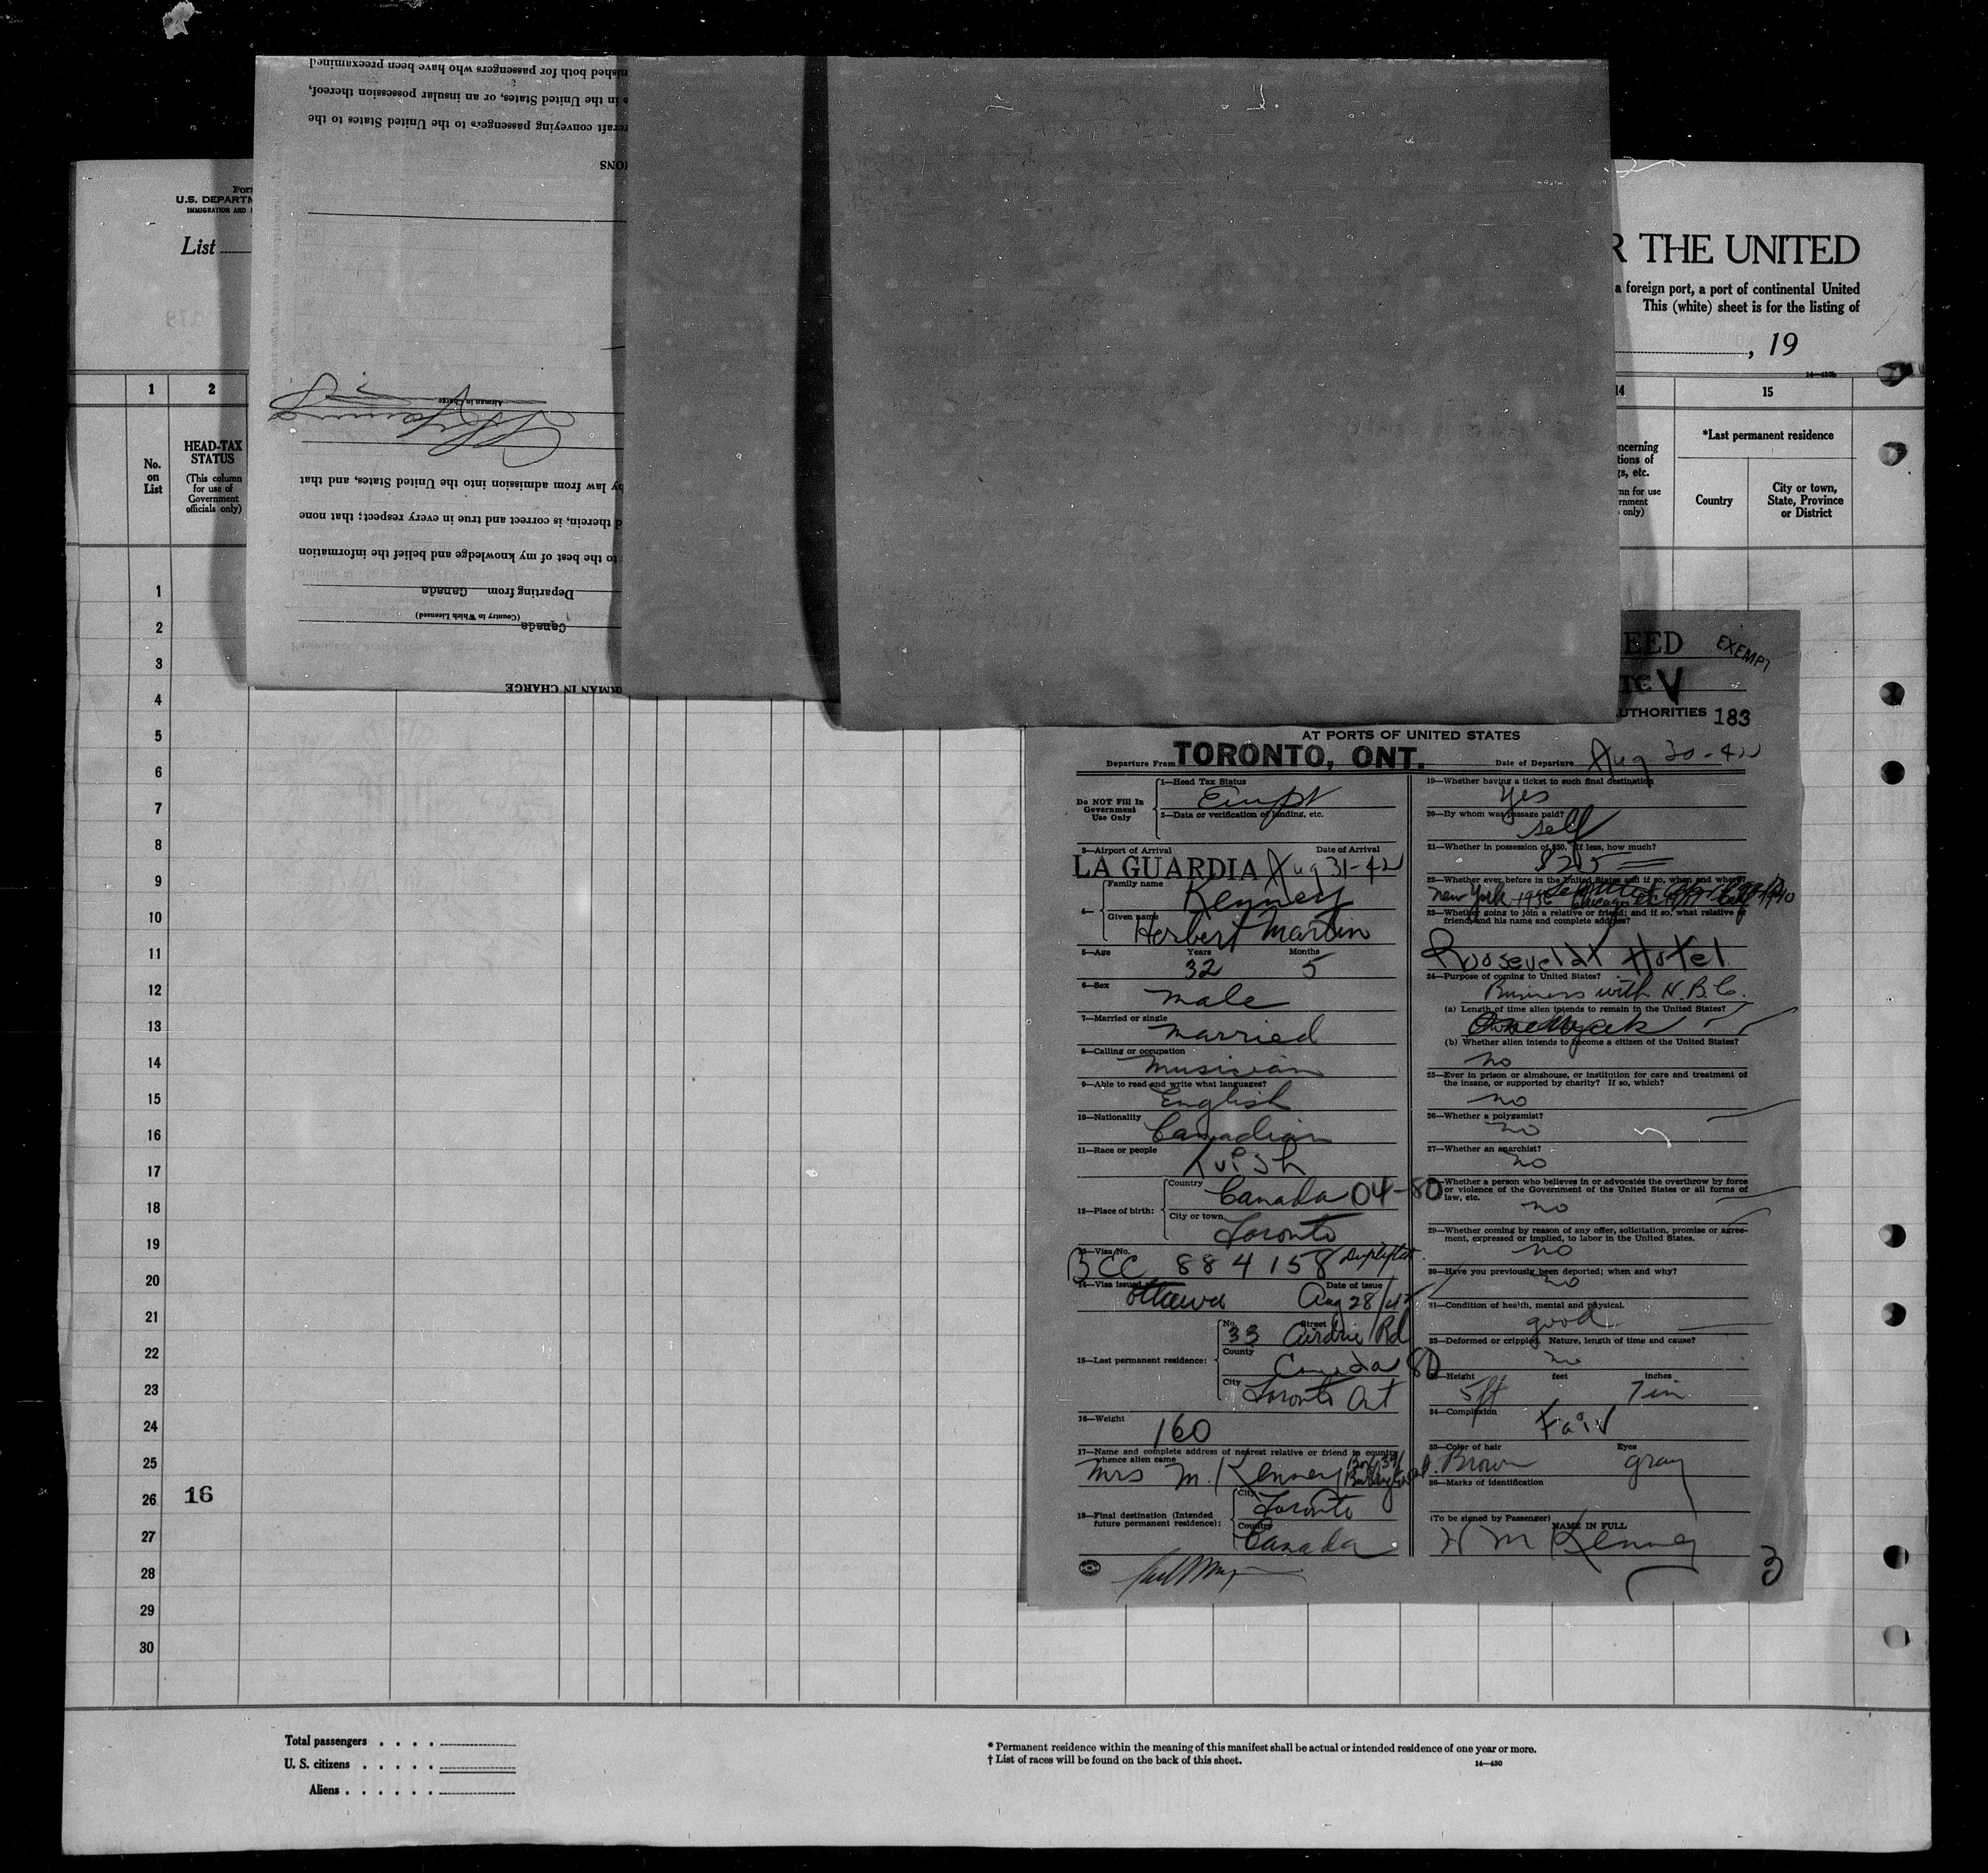 Form
U.S. DEPARTM
IMMIGRATION AND
List
nished both for passengers who have been preexamined
in the United States, or an insular possession thereof,
craft conveying passengers to the United States to the
IONS
Airman in Charge
by law from admission into the United States, and that
d therein, is correct and true in every respect; that none
to the best of my knowledge and belief the information
Departing from Canada
(Country in Which Licensed)
Canada
RMAN IN CHARGE
R THE UNITED
a foreign port, a port of continental United
This (white) sheet is for the listing of
, 19
1 2
14 15
No. on List
HEAD-TAX STATUS
(This column for use of Government officials only)
ncerning
tions of
s, etc.
mn for use
rnment
only)
*Last permanent residence
Country
City or town, State, Province or District
1
2
3
4
5
6
7
8
9
10
11
12
13
14
15
16
17
18
19
20
21
22
23
24
25
26 16
27
28
29
30
EED
EXEMPT
UTHORITIES 183
AT PORTS OF UNITED STATES
Departure From TORONTO, ONT. Date of Departure Aug 30-42
Do NOT Fill In Government Use Only
1—Head Tax Status
2—Data or verification of landing, etc.
3—Airport of Arrival Date of Arrival
LA GUARDIA Aug 31-42
4— Family name Kenney
Given name Herbert Martin
5—Age Years 32 Months 5
6—Sex male
7—Married or single married
8—Calling or occupation musician
9—Able to read and write what languages? English
10—Nationality Canadian
11—Race or people Irish
12—Place of birth: Country Canada 04-80
City or town Toronto
13—Visa No. BCC 884158
14—Visa issued Ottawa Date of issue Aug 28/42
15—Last permanent residence: No. 33 Street Airdrie Rd
County Canada 80
City Toronto Ont
16—Weight 160
17—Name and complete address of nearest relative or friend in country whence alien came
Mrs M. Kenney Box 391
18—Final destination (Intended future permanent residence): City Toronto
Country Canada
19—Whether having a ticket to such final destination Yes
20—By whom was passage paid? self
21—Whether in possession of $50. If less, how much? $25
22—Whether ever before in the United States and if so, when and where?
New York 1940
23—Whether going to join a relative or friend; and if so, what relative or friend, and his name and complete address?
Roosevelt Hotel
24—Purpose of coming to United States? Business with N.B.C.
(a) Length of time alien intends to remain in the United States? One Week
(b) Whether alien intends to become a citizen of the United States? no
25—Ever in prison or almshouse, or institution for care and treatment of the insane, or supported by charity? If so, which? no
26—Whether a polygamist? no
27—Whether an anarchist? no
28—Whether a person who believes in or advocates the overthrow by force or violence of the Government of the United States or all forms of law, etc. no
29—Whether coming by reason of any offer, solicitation, promise or agreement, expressed or implied, to labor in the United States. no
30—Have you previously been deported; when and why? no
31—Condition of health, mental and physical. good
32—Deformed or crippled. Nature, length of time and cause? no
33—Height 5ft feet 7in inches
34—Complexion Fair
35—Color of hair Brown Eyes gray
36—Marks of identification
(To be signed by Passenger) NAME IN FULL
H M Kenney
3
Total passengers . . . .
U. S. citizens . . . . .
Aliens . . . . . .
* Permanent residence within the meaning of this manifest shall be actual or intended residence of one year or more.
† List of races will be found on the back of this sheet.
14—430